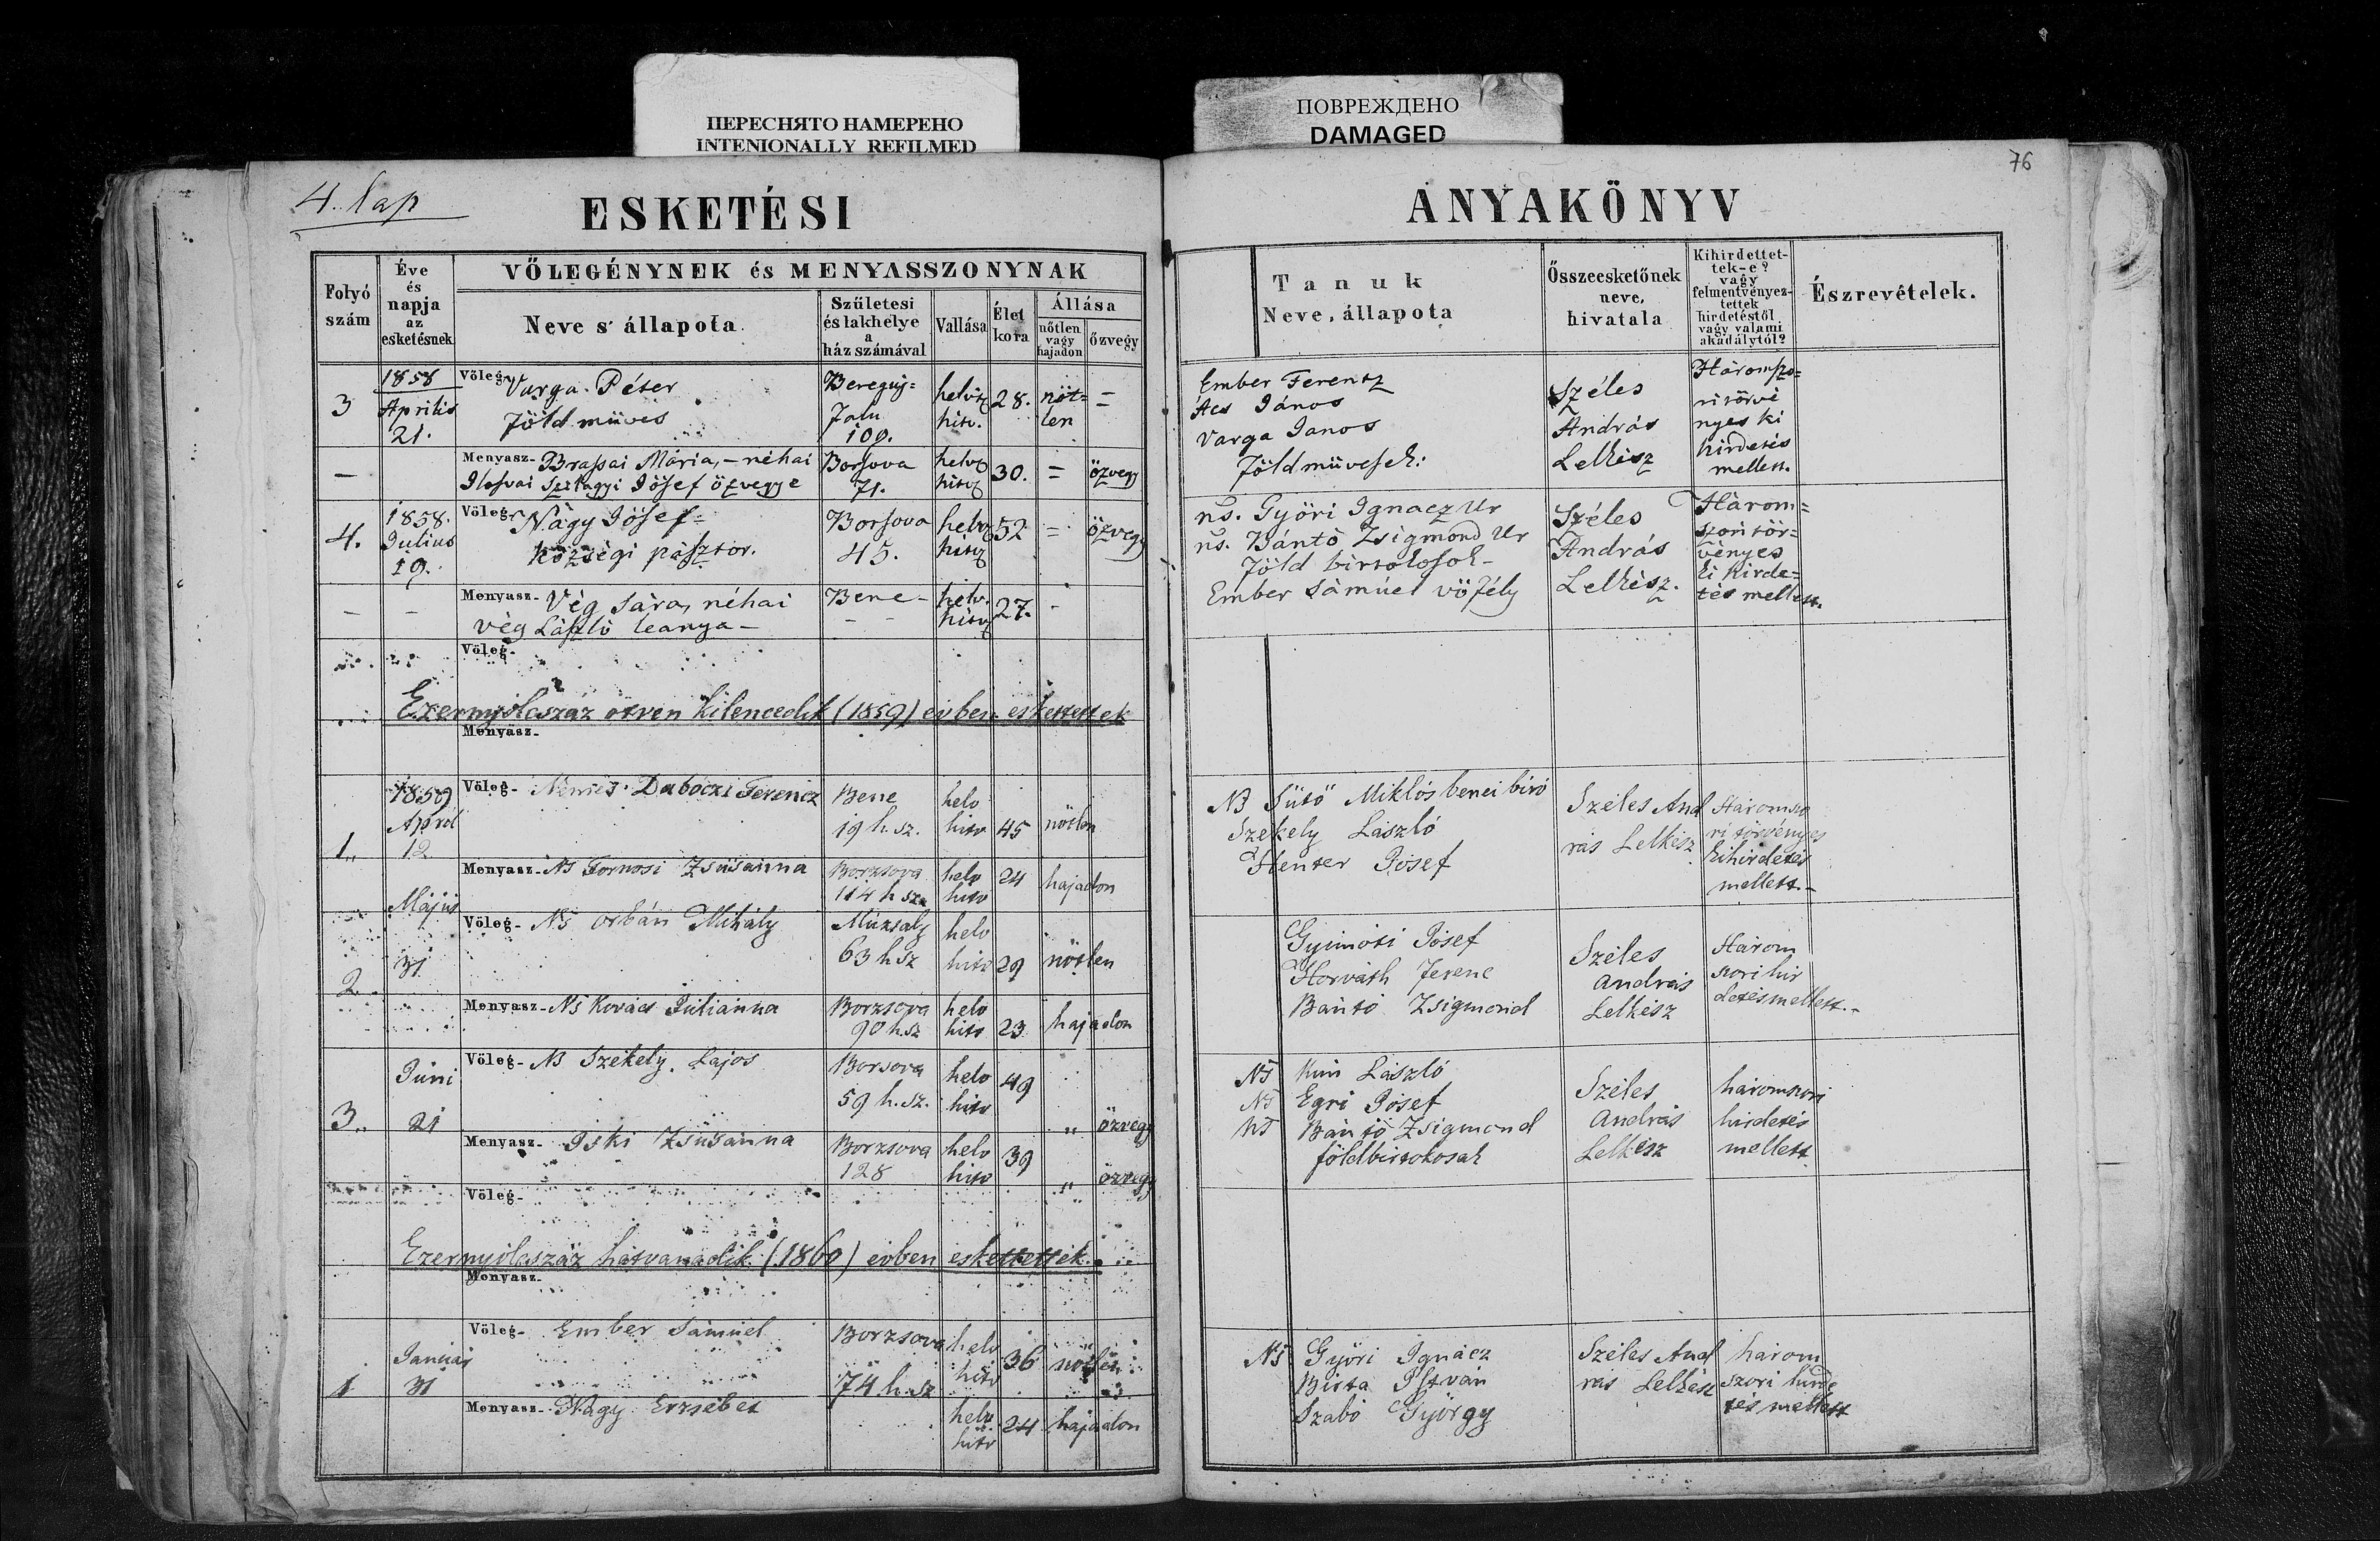 ПЕРЕСНЯТО НАМЕРЕНО
INTENIONALLY REFILMED
ПОВРЕЖДЕНО
DAMAGED
76
4. lap
ESKETÉSI
ANYAKÖNYV
Folyó szám
Éve és napja az esketésnek
VŐLEGÉNYNEK és MENYASSZONYNAK
Neve s' állapota
Születesi és lakhelye a ház számával
Vallása
Élet kora
Állása
nőtlen vagy hajadon
őzvegy
Tanuk
Neve, állapota
Összeesketőnek neve, hivatala
Kihirdettettek-e? vagy felmentvényeztettek hirdetéstől vagy valami akadálytól?
Észrevételek.
3
1858
Aprilis
21.
Vőleg- Varga Péter
Földmüves
Bereguj=
falu
109.
helv
hitv.
28.
nöt=
len
=
Ember Ferentz
Ács János
Varga Janos
Földmüvesek:
Széles
András
Lelkész
Háromszo=
ri törvé
nyes ki
hirdetés
mellett.
Menyasz- Brassai Mária, - néhai
Ilosvai Szilágyi Jósef özvegye
Borsova
71.
helv
hitv
30.
=
özvegy
4.
1858.
Julius
19.
Vőleg- Nagy Jósef=
Községi pásztor.
Borsova
45.
helv
hitv
52
=
özvegy
ns. Györi Ignacz Ur
ns. Bántó Zsigmond Ur
Föld birtokosok-
Ember Sámuel vöfély
Széles
András
Lelkész.
Három=
szori tör=
vényes
ki hirde=
tés mellett.
Menyasz- Vég Sára, néhai
vég László leanya-
Bene-
helv.
hitv
27.
Vőleg-
Ezernyolcszáz ötven kilencedik (1859) évben eskettettek
Menyasz-
1.
1859
April
12
Vőleg- Nemes Dabóczi Ferencz
Bene
19 h. sz.
helv
hitv
45
nőtlen
NB Sütő Miklós benei biró
Székely László
Henter Jósef
Széles And
rás Lelkész
Háromszo
ri törvényes
kihirdetés
mellett.-
Menyasz- NS Fornosi Zsúsánna
Borzsova
114 h sz.
helv
hitv
24
hajadon
2.
Május
31
Vőleg- NS Orbán Mihály
Múzsaly
63 h sz
helv
hitv
29
nőtlen
Gyimóti Jósef
Horváth Ferenc
Bántó Zsigmond
Széles
András
Lelkész
Három
szori hir
detés mellett.-
Menyasz- NS Kovács Júliánna
Borzsova
90 h. sz
helv
hitv
23
hajadon
3.
Júni
21
Vőleg- NS Székely Lajos
Borsova
59 h. sz.
helv
hitv
49
„
özvegy
NS Kún László
NS Egri Jósef
NS Bántó Zsigmond
földbirtokosak
Széles
András
Lelkész
háromszori
hirdetés
mellett
Menyasz- Iski Zsúsánna
Borzsova
128
helv
hitv
39
„
özvegy
Vőleg-
Ezernyolcszáz hatvanadik (1860) évben eskettettek.
Menyasz-
1
Január
31
Vőleg- Ember Sámuel
Borzsova
74 h. sz
helv
hitv
36
nőtlen
NS Györi Ignácz
Birta István
Szabó György
Széles And
rás Lelkész
három
szori hirde
tés mellett
Menyasz- Nagy Erzsébet
helv
hitv
24
hajadon